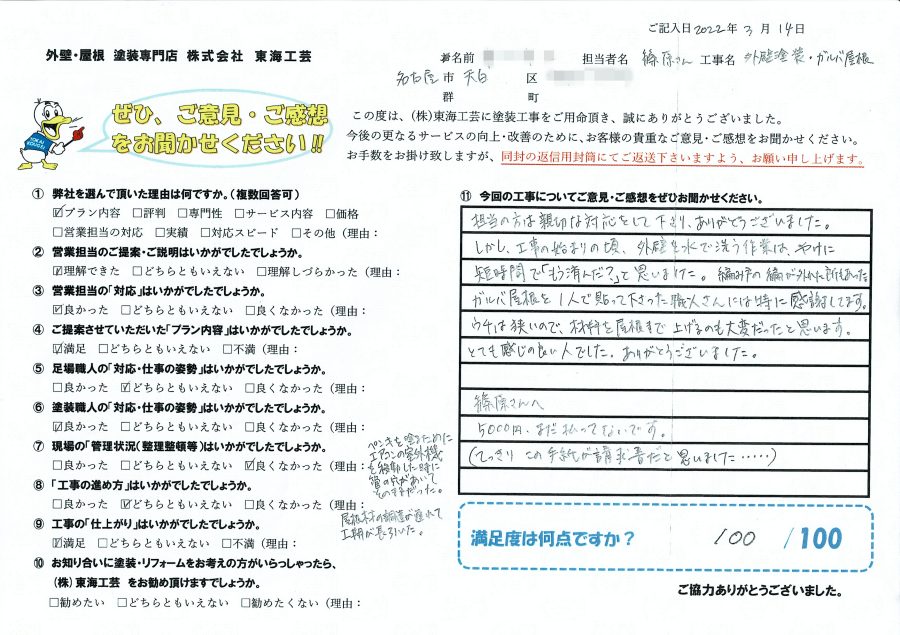 ご記入日2022年 3月 14日
外壁・屋根 塗装専門店 株式会社 東海工芸
お名前 担当者名 篠原さん 工事名 外壁塗装・ガルバ屋根
名古屋市 天白区
郡 町
ぜひ、ご意見・ご感想
をお聞かせください!!
この度は、(株)東海工芸に塗装工事をご用命頂き、誠にありがとうございました。
今後の更なるサービスの向上・改善のために、お客様の貴重なご意見・ご感想をお聞かせください。
お手数をお掛け致しますが、同封の返信用封筒にてご返送下さいますよう、お願い申し上げます。
① 弊社を選んで頂いた理由は何ですか。(複数回答可)
☑プラン内容 □評判 □専門性 □サービス内容 □価格
□営業担当の対応 □実績 □対応スピード □その他(理由:
② 営業担当のご提案・ご説明はいかがでしたでしょうか。
☑理解できた □どちらともいえない □理解しづらかった(理由:
③ 営業担当の「対応」はいかがでしたでしょうか。
☑良かった □どちらともいえない □良くなかった(理由:
④ ご提案させていただいた「プラン内容」はいかがでしたでしょうか。
☑満足 □どちらともいえない □不満(理由:
⑤ 足場職人の「対応・仕事の姿勢」はいかがでしたでしょうか。
□良かった ☑どちらともいえない □良くなかった(理由:
⑥ 塗装職人の「対応・仕事の姿勢」はいかがでしたでしょうか。
□良かった ☑どちらともいえない □良くなかった(理由:
⑦ 現場の「管理状況(整理整頓等)はいかがでしたでしょうか。
□良かった □どちらともいえない ☑良くなかった(理由:
ペンキを塗るために
エアコンの室外機
を移動した時に
管の穴があいて
そのままだった。
⑧ 「工事の進め方」はいかがでしたでしょうか。
□良かった ☑どちらともいえない □良くなかった(理由:
屋根材の調達が遅れて
工期が長引いた。
⑨ 工事の「仕上がり」はいかがでしたでしょうか。
☑満足 □どちらともいえない □不満(理由:
⑩ お知り合いに塗装・リフォームをお考えの方がいらっしゃったら、
(株)東海工芸 をお勧め頂けますでしょうか。
□勧めたい □どちらともいえない □勧めたくない(理由:
⑪ 今回の工事についてご意見・ご感想をぜひお聞かせください。
担当の方は親切な対応をして下さり、ありがとうございました。
しかし、工事の始まりの頃、外壁を水で洗う作業は、やけに
短時間で「もう済んだ?」と思いました。網み戸の編が外かた所もあった
ガルバ屋根を1人で貼って下さった職人さんには特に感謝してます。
ウチは狭いので、材料を屋根まで上げるのも大変だったと思います。
とても感じの良い人でした。ありがとうございました。
篠原さんへ
5000円、まだ払ってないです。
(てっきりこの手紙が請求書だと思いました……)
満足度は何点ですか? 100 / 100
ご協力ありがとうございました。